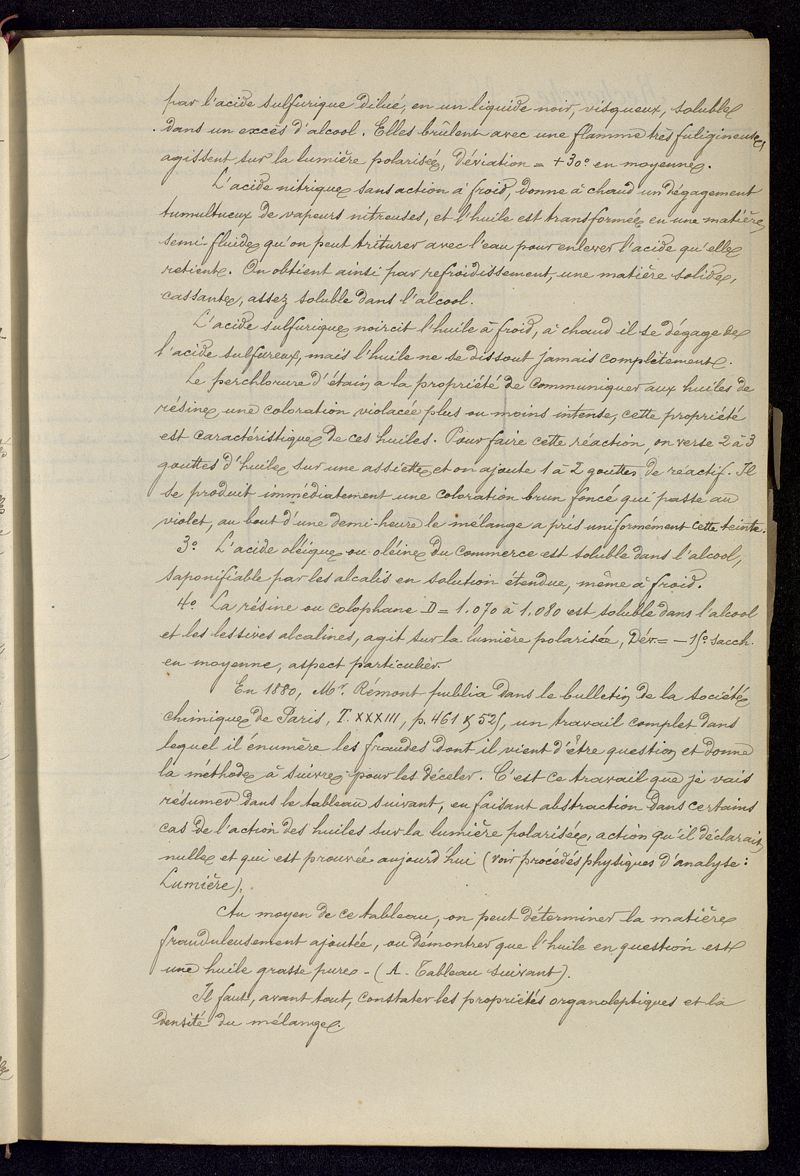 par l'acide sulfurique dilué, en un liquide noir, visqueux, soluble
dans un excès d'alcool. Elles brûlent avec une flamme très fuligineuse,
agissent sur la lumière polarisée, déviation = + 30° en moyenne.
L'acide nitrique sans action à froid, donne à chaud un dégagement
tumultueux de vapeurs nitreuses, et l'huile est transformée en une matière
semi-fluide qu'on peut triturer avec l'eau pour enlever l'acide qu'elle
retient. On obtient ainsi par refroidissement, une matière solide,
cassante, assez soluble dans l'alcool.
L'acide sulfurique noircit l'huile à froid, à chaud il se dégage de
l'acide sulfureux, mais l'huile ne se dissout jamais complètement.
Le perchlorure d'étain a la propriété de communiquer aux huiles de
résine une coloration violacée plus ou moins intense, cette propriété
est caractéristique de ces huiles. Pour faire cette réaction, on verse 2 à 3
gouttes d'huile sur une assiette et on ajoute 1 à 2 gouttes de réactif. Il
se produit immédiatement une coloration brun foncé qui passe au
violet, au bout d'une demi-heure le mélange a pris uniformément cette teinte.
3° L'acide oléique ou oléine du commerce est soluble dans l'alcool,
saponifiable par les alcalis en solution étendue, même à froid.
4° La résine ou colophane D = 1.070 à 1.080 est soluble dans l'alcool
et les lessives alcalines, agit sur la lumière polarisée, Dév. = - 15° sacch.
en moyenne, aspect particulier.
En 1880, Mr. Rémont publia dans le bulletin de la société
chimique de Paris, T. XXXIII, p. 461 & 525, un travail complet dans
lequel il énumère les fraudes dont il vient d'être question et donne
la méthode à suivre pour les déceler. C'est ce travail que je vais
résumer dans le tableau suivant, en faisant abstraction dans certains
cas de l'action des huiles sur la lumière polarisée, action qu'il déclarait
nulle et qui est prouvée aujourd'hui (voir procédés physiques d'analyse :
Lumière).
Au moyen de ce tableau, on peut déterminer la matière
frauduleusement ajoutée, ou démontrer que l'huile en question est
une huile grasse pure - (A. Tableau suivant).
Il faut, avant tout, constater les propriétés organoleptiques et la
densité du mélange.